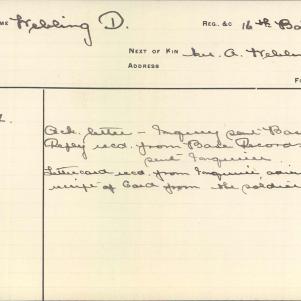 ME Webling D. REG. &C 16th Ba
NEXT OF KIN Mr. A. Webbin
ADDRESS
F
Ack. letter - Inquiry sent Bas
Reply recd. from Base Records
sent Inquirer
Lettercard recd. from Inquirer, advis
receipt of Card from the soldier